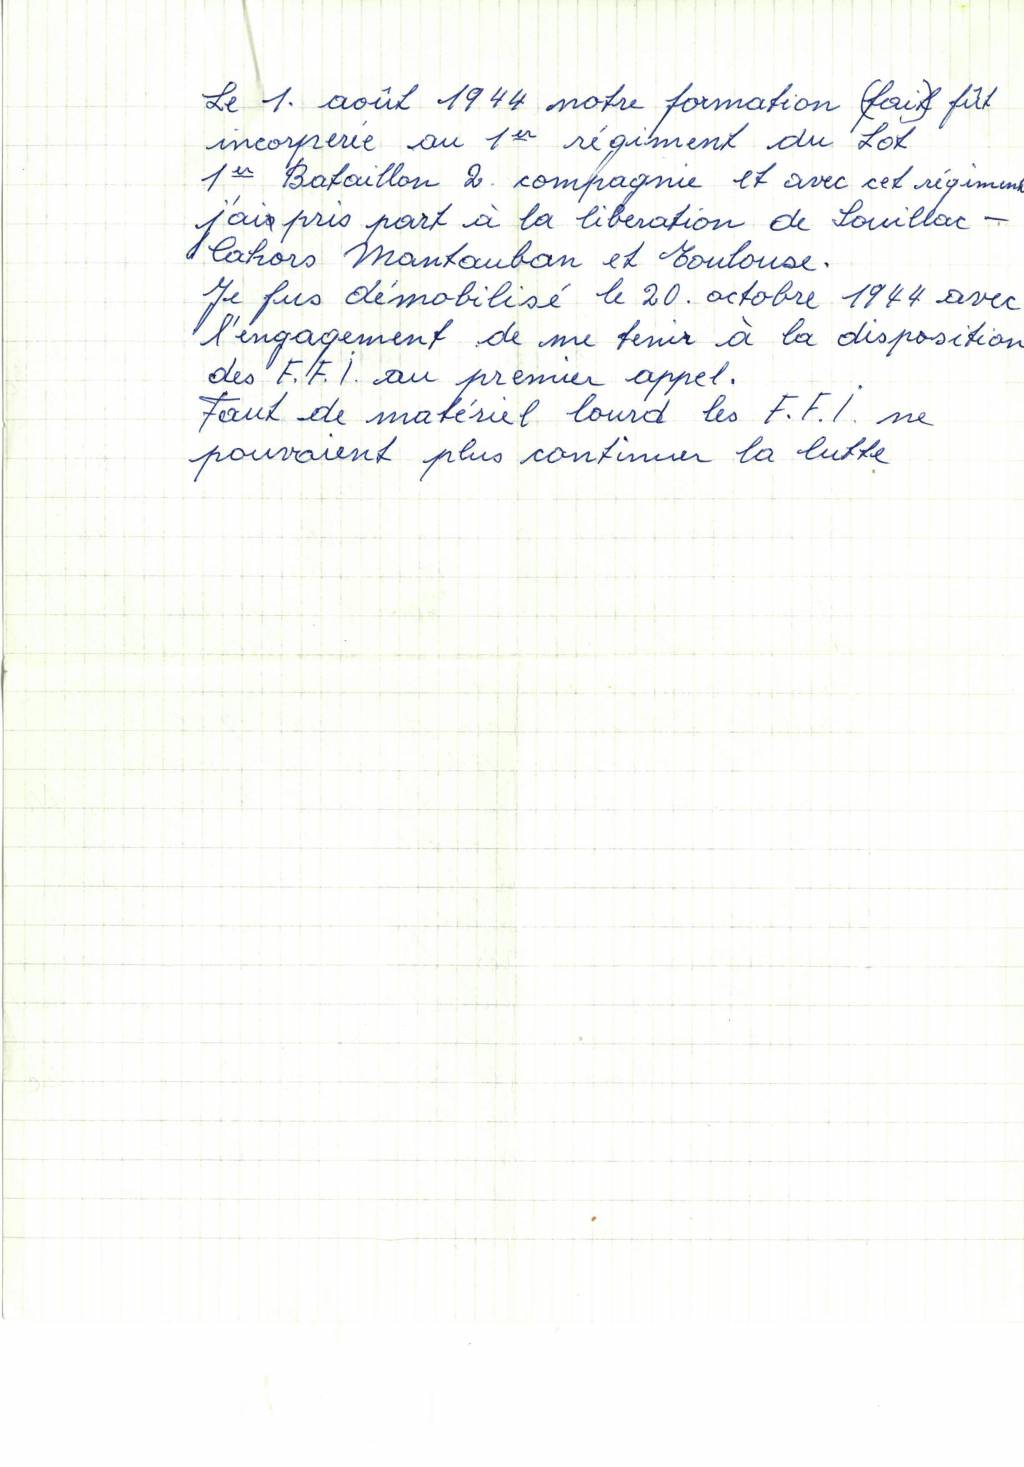 Le 1. août 1944 notre formation (fait) fût
incorperée au 1er régiment du Lot
1er Bataillon 2. compagnie et avec cet régiment
j'ai pris part à la liberation de Souillac -
Cahors Mantauban et Toulouse.
Je fus démobilisé le 20. octobre 1944 avec
l'engagement de me tenir à la disposition
des F.F.I. au premier appel.
Faut de matériel lourd les F.F.I. ne
pouvaient plus continuer la lutte